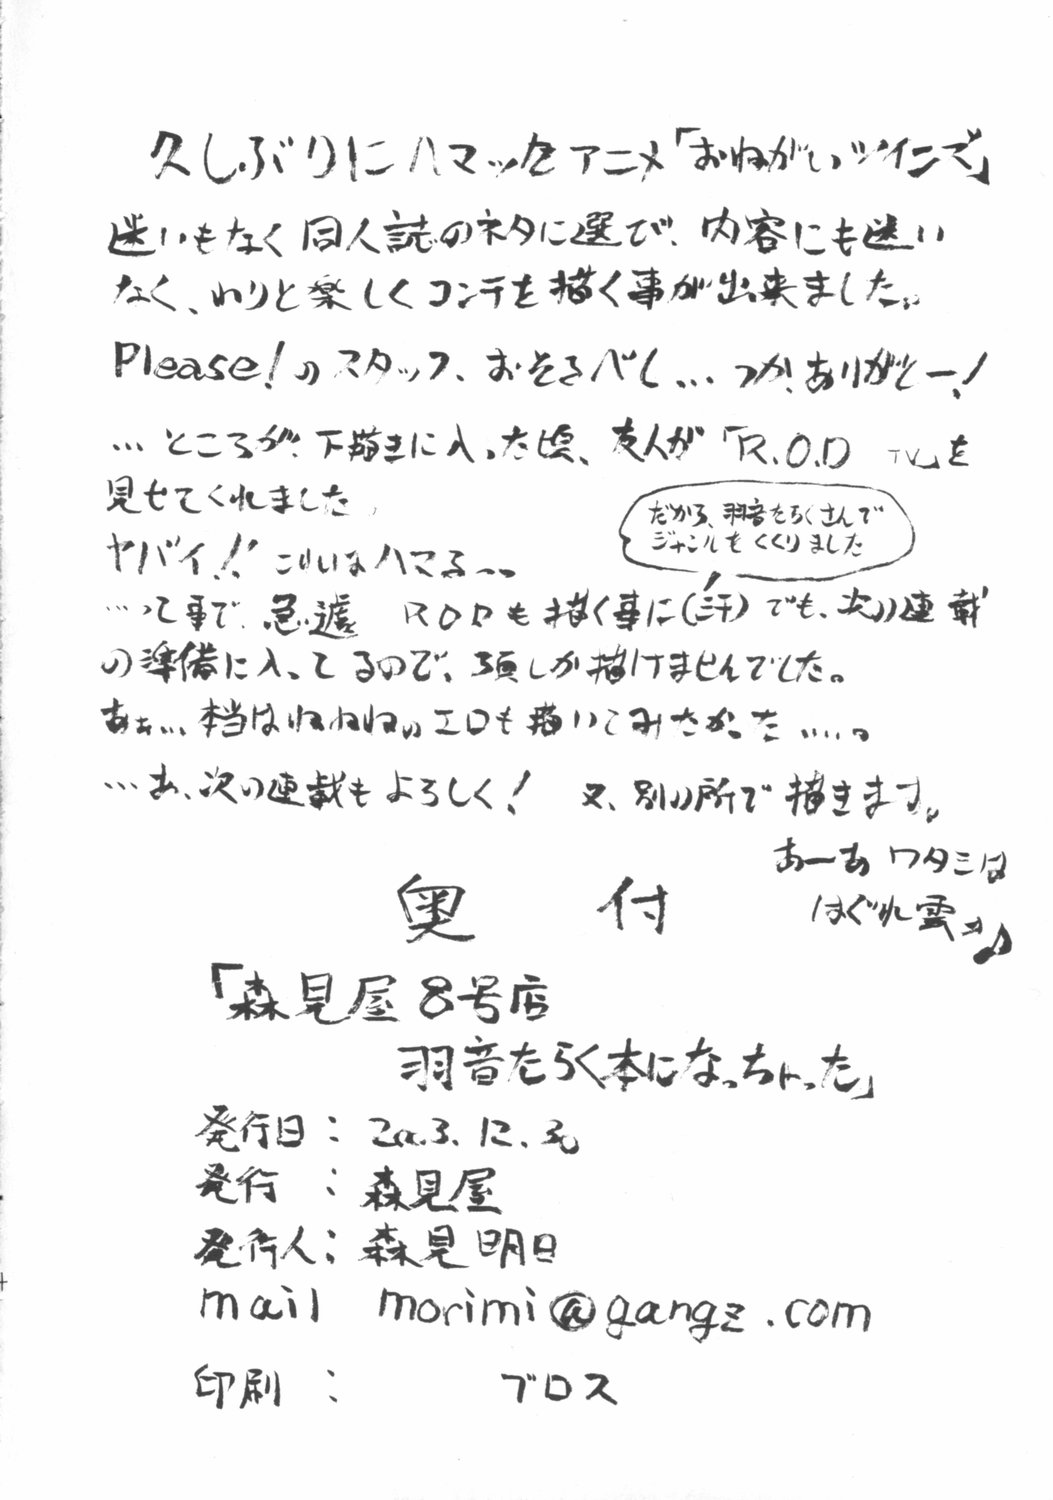 久しぶりにハマったアニメ「おねがいツインズ」
迷いもなく同人誌のネタに選び、内容にも迷い
なく、わりと楽しくコンテを描く事が出来ました。
Please!のスタッフ、おそるべし…つか、ありがとー!
…ところが、下描きに入った頃、友人が「R.O.D TV」を
見せてくれました。
だから、羽音たらくさんで
ジャンルをくくりました
ヤバイ!! こりはハマる〜。
…って事で、急遽 RODも描く事に(汗) でも、次の連載
の準備に入ってるので、3頁しか描けませんでした。
あぁ…本当はねねねのエロも描いてみたかった……。
…あ、次の連載もよろしく! 又、別の所で描きます。
あーあ ワタミは
はぐれ雲ヨ♪
奥付
「森見屋8号店
羽音たらく本になっちゃった」
発行日：2003.12.30
発行 ：森見屋
発行人：森見明日
mail morimi@gangz.com
印刷 ： ブロス